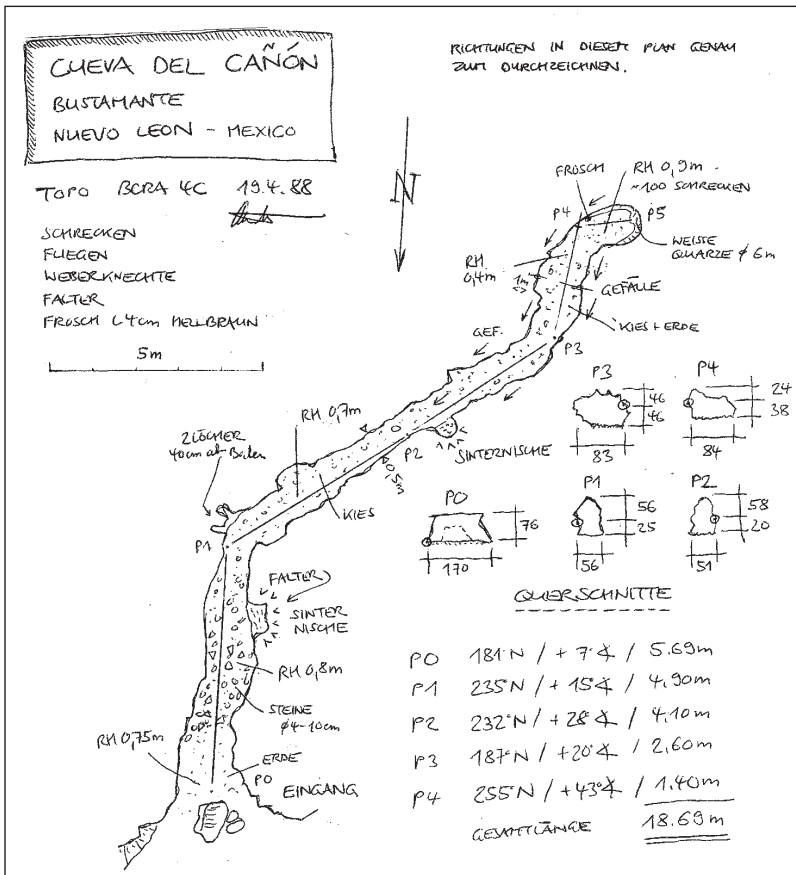 CUEVA DEL CAÑÓN
BUSTAMANTE
NUEVO LEON - MEXICO
RICHTUNGEN IN DIESEM PLAN GENAU
ZUM DURCHZEICHNEN.
TOPO BCRA 4C 19.4.88
SCHRECKEN
FLIEGEN
WEBERKNECHTE
FALTER
FROSCH L 4cm HELLBRAUN
5m
N
FROSCH
RH 0,9m
~100 SCHRECKEN
P4
P5
WEISSE
QUARZE ø 6m
RH
0,4m
1m
GEFÄLLE
KIES + ERDE
GEF.
P3
RH 0,7m
2 LÖCHER
40cm ab Boden
P2
SINTERNISCHE
0,5m
KIES
P1
FALTER
SINTER
NISCHE
RH 0,8m
STEINE
ø4-10cm
RH 0,75m
ERDE
P0
EINGANG
P3
46
46
83
P4
24
38
84
P0
76
170
P1
56
25
56
P2
58
20
51
QUERSCHNITTE
P0 181°N / + 7°∡ / 5.69m
P1 235°N / + 15°∡ / 4,90m
P2 232°N / + 28°∡ / 4,10m
P3 187°N / +20°∡ / 2,60m
P4 255°N / +43°∡ / 1.40m
GESAMTLÄNGE 18.69m